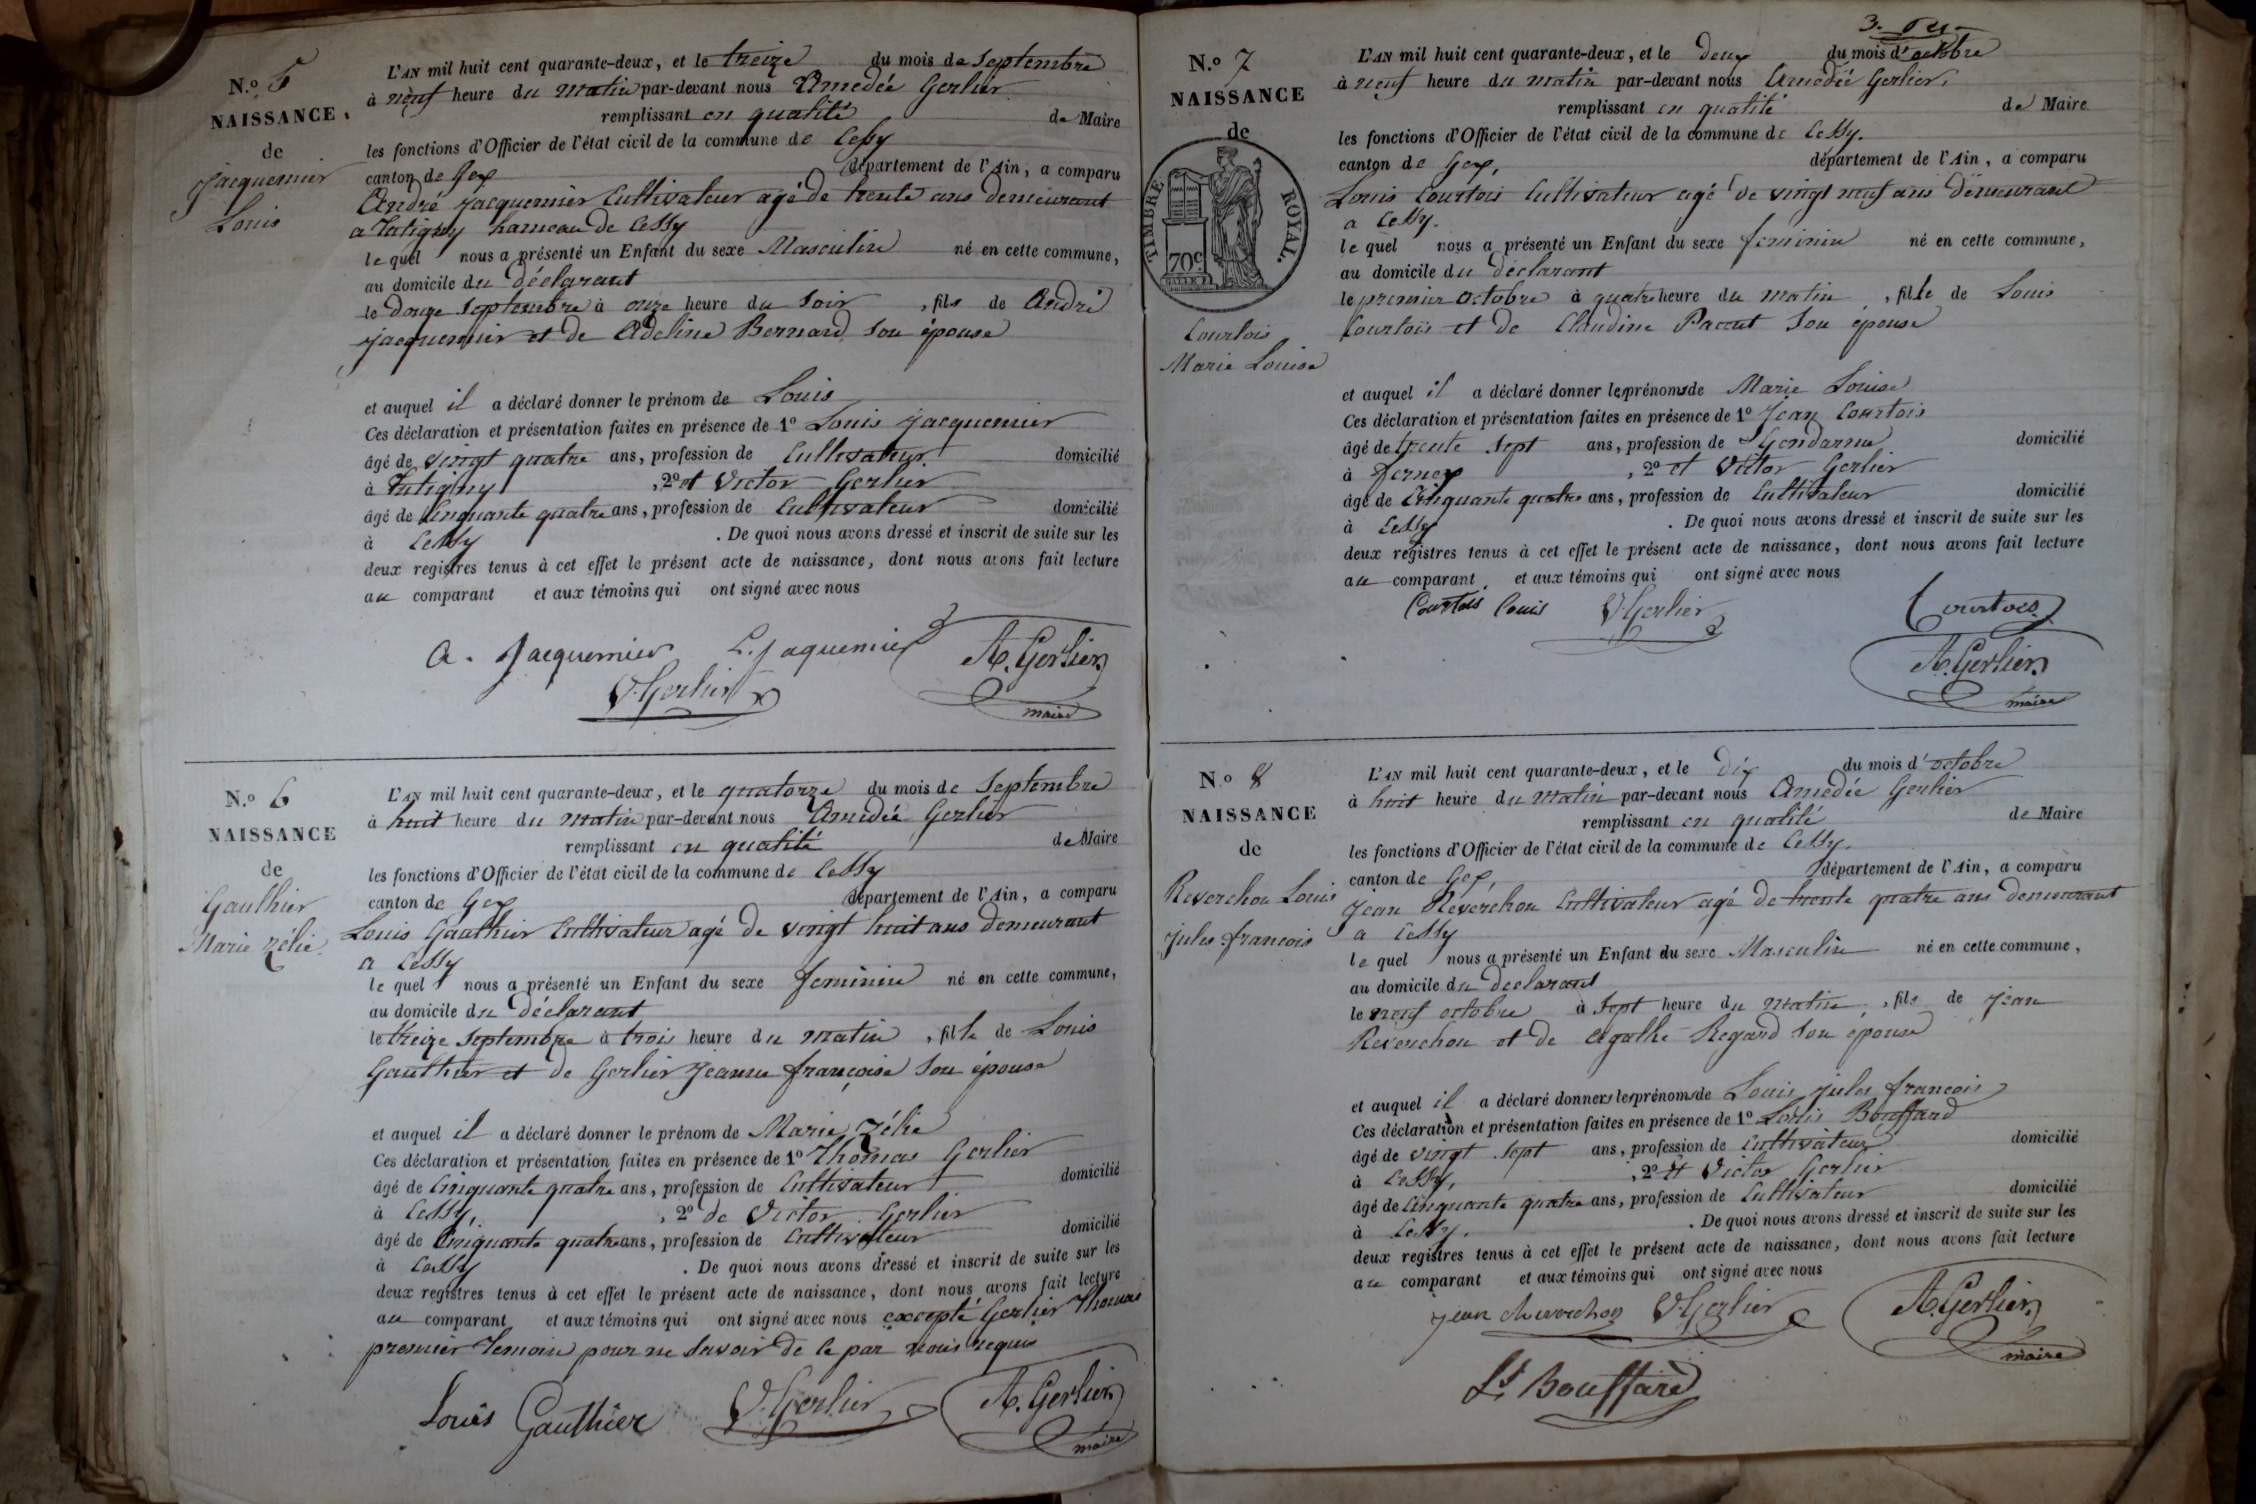 N.o 5
NAISSANCE.
de
Jacquemier
Louis
L'AN mil huit cent quarante-deux, et le treize du mois de Septembre
à neuf heure du matin par-devant nous Amedée Gerlier
remplissant en qualité de Maire
les fonctions d'Officier de l'état civil de la commune de Cessy
canton de Gex département de l'Ain, a comparu
André Jacquemier Cultivateur agé de trente ans demeurant
a Tutigny hameau de Cessy
le quel nous a présenté un Enfant du sexe Masculin né en cette commune,
au domicile du déclarant
le douze Septembre à onze heure du soir, fils de André
Jacquemier et de Adeline Bernard son épouse
et auquel il a déclaré donner le prénom de Louis
Ces déclaration et présentation faites en présence de 1o Louis Jacquemier
âgé de vingt quatre ans, profession de Cultivateur domicilié
à Tutigny, 2o et Victor Gerlier
âgé de Cinquante quatre ans, profession de Cultivateur domicilié
à Cessy. De quoi nous avons dressé et inscrit de suite sur les
deux registres tenus à cet effet le présent acte de naissance, dont nous avons fait lecture
au comparant et aux témoins qui ont signé avec nous
A. Jacquemier L. Jaquemier A. Gerlier
V. Gerlier maire
N.o 6
NAISSANCE
de
Gauthier
Marie Zélie
L'AN mil huit cent quarante-deux, et le quatorze du mois de Septembre
à huit heure du matin par-devant nous Amedée Gerlier
remplissant en qualité de Maire
les fonctions d'Officier de l'état civil de la commune de Cessy
canton de Gex département de l'Ain, a comparu
Louis Gauthier Cultivateur agé de vingt huit ans demeurant
a Cessy
le quel nous a présenté un Enfant du sexe feminin né en cette commune,
au domicile du déclarant
le treize Septembre à trois heure du matin, fille de Louis
Gauthier et de Gerlier Jeanne françoise son épouse
et auquel il a déclaré donner le prénom de Marie Zélie
Ces déclaration et présentation faites en présence de 1o Thomas Gerlier
âgé de Cinquante quatre ans, profession de Cultivateur domicilié
à Cessy, , 2o de Victor Gerlier
âgé de Cinquante quatre ans, profession de Cultivateur domicilié
à Cessy. De quoi nous avons dressé et inscrit de suite sur les
deux registres tenus à cet effet le présent acte de naissance, dont nous avons fait lecture
au comparant et aux témoins qui ont signé avec nous excepté Gerlier Thomas
premier temoin pour ne savoir de le par nous requis
Louis Gauthier V. Gerlier A. Gerlier
maire
N.o 7
NAISSANCE
de
TIMBRE ROYAL.
70c
Courtois
Marie Louise
L'AN mil huit cent quarante-deux, et le deux du mois d'octobre
à neuf heure du matin par-devant nous Amedée Gerlier,
remplissant en qualité de Maire
les fonctions d'Officier de l'état civil de la commune de Cessy.
canton de Gex, département de l'Ain, a comparu
Louis Courtois Cultivateur agé de vingt neuf ans demeurant
a Cessy.
le quel nous a présenté un Enfant du sexe feminin né en cette commune,
au domicile du déclarant
le premier octobre à quatre heure du matin, fille de Louis
Courtois et de Claudine Paccut son épouse
et auquel il a déclaré donner les prénoms de Marie Louise
Ces déclaration et présentation faites en présence de 1o Jean Courtois
âgé de trente sept ans, profession de Gendarme domicilié
à Fernex, 2o et Victor Gerlier
âgé de Cinquante quatre ans, profession de Cultivateur domicilié
à Cessy. De quoi nous avons dressé et inscrit de suite sur les
deux registres tenus à cet effet le présent acte de naissance, dont nous avons fait lecture
au comparant et aux témoins qui ont signé avec nous
Courtois Louis V. Gerlier Courtois
A. Gerlier
maire
N.o 8
NAISSANCE
de
Reverchon Louis
Jules francois
L'AN mil huit cent quarante-deux, et le dix du mois d'octobre
à huit heure du matin par-devant nous Amedée Gerlier
remplissant en qualité de Maire
les fonctions d'Officier de l'état civil de la commune de Cessy.
canton de Gex, département de l'Ain, a comparu
Jean Reverchon Cultivateur agé de trente quatre ans demeurant
a Cessy
le quel nous a présenté un Enfant du sexe Masculin né en cette commune,
au domicile du declarant
le neuf octobre à sept heure du matin, fils de Jean
Reverchon et de Agathe Regard son épouse
et auquel il a déclaré donner les prénoms de Louis Jules francois
Ces déclaration et présentation faites en présence de 1o Louis Bouffard
âgé de vingt sept ans, profession de Cultivateur domicilié
à Cessy, , 2o et Victor Gerlier
âgé de Cinquante quatre ans, profession de Cultivateur domicilié
à Cessy. . De quoi nous avons dressé et inscrit de suite sur les
deux registres tenus à cet effet le présent acte de naissance, dont nous avons fait lecture
au comparant et aux témoins qui ont signé avec nous
V. Gerlier A. Gerlier
maire
Ls Bouffard